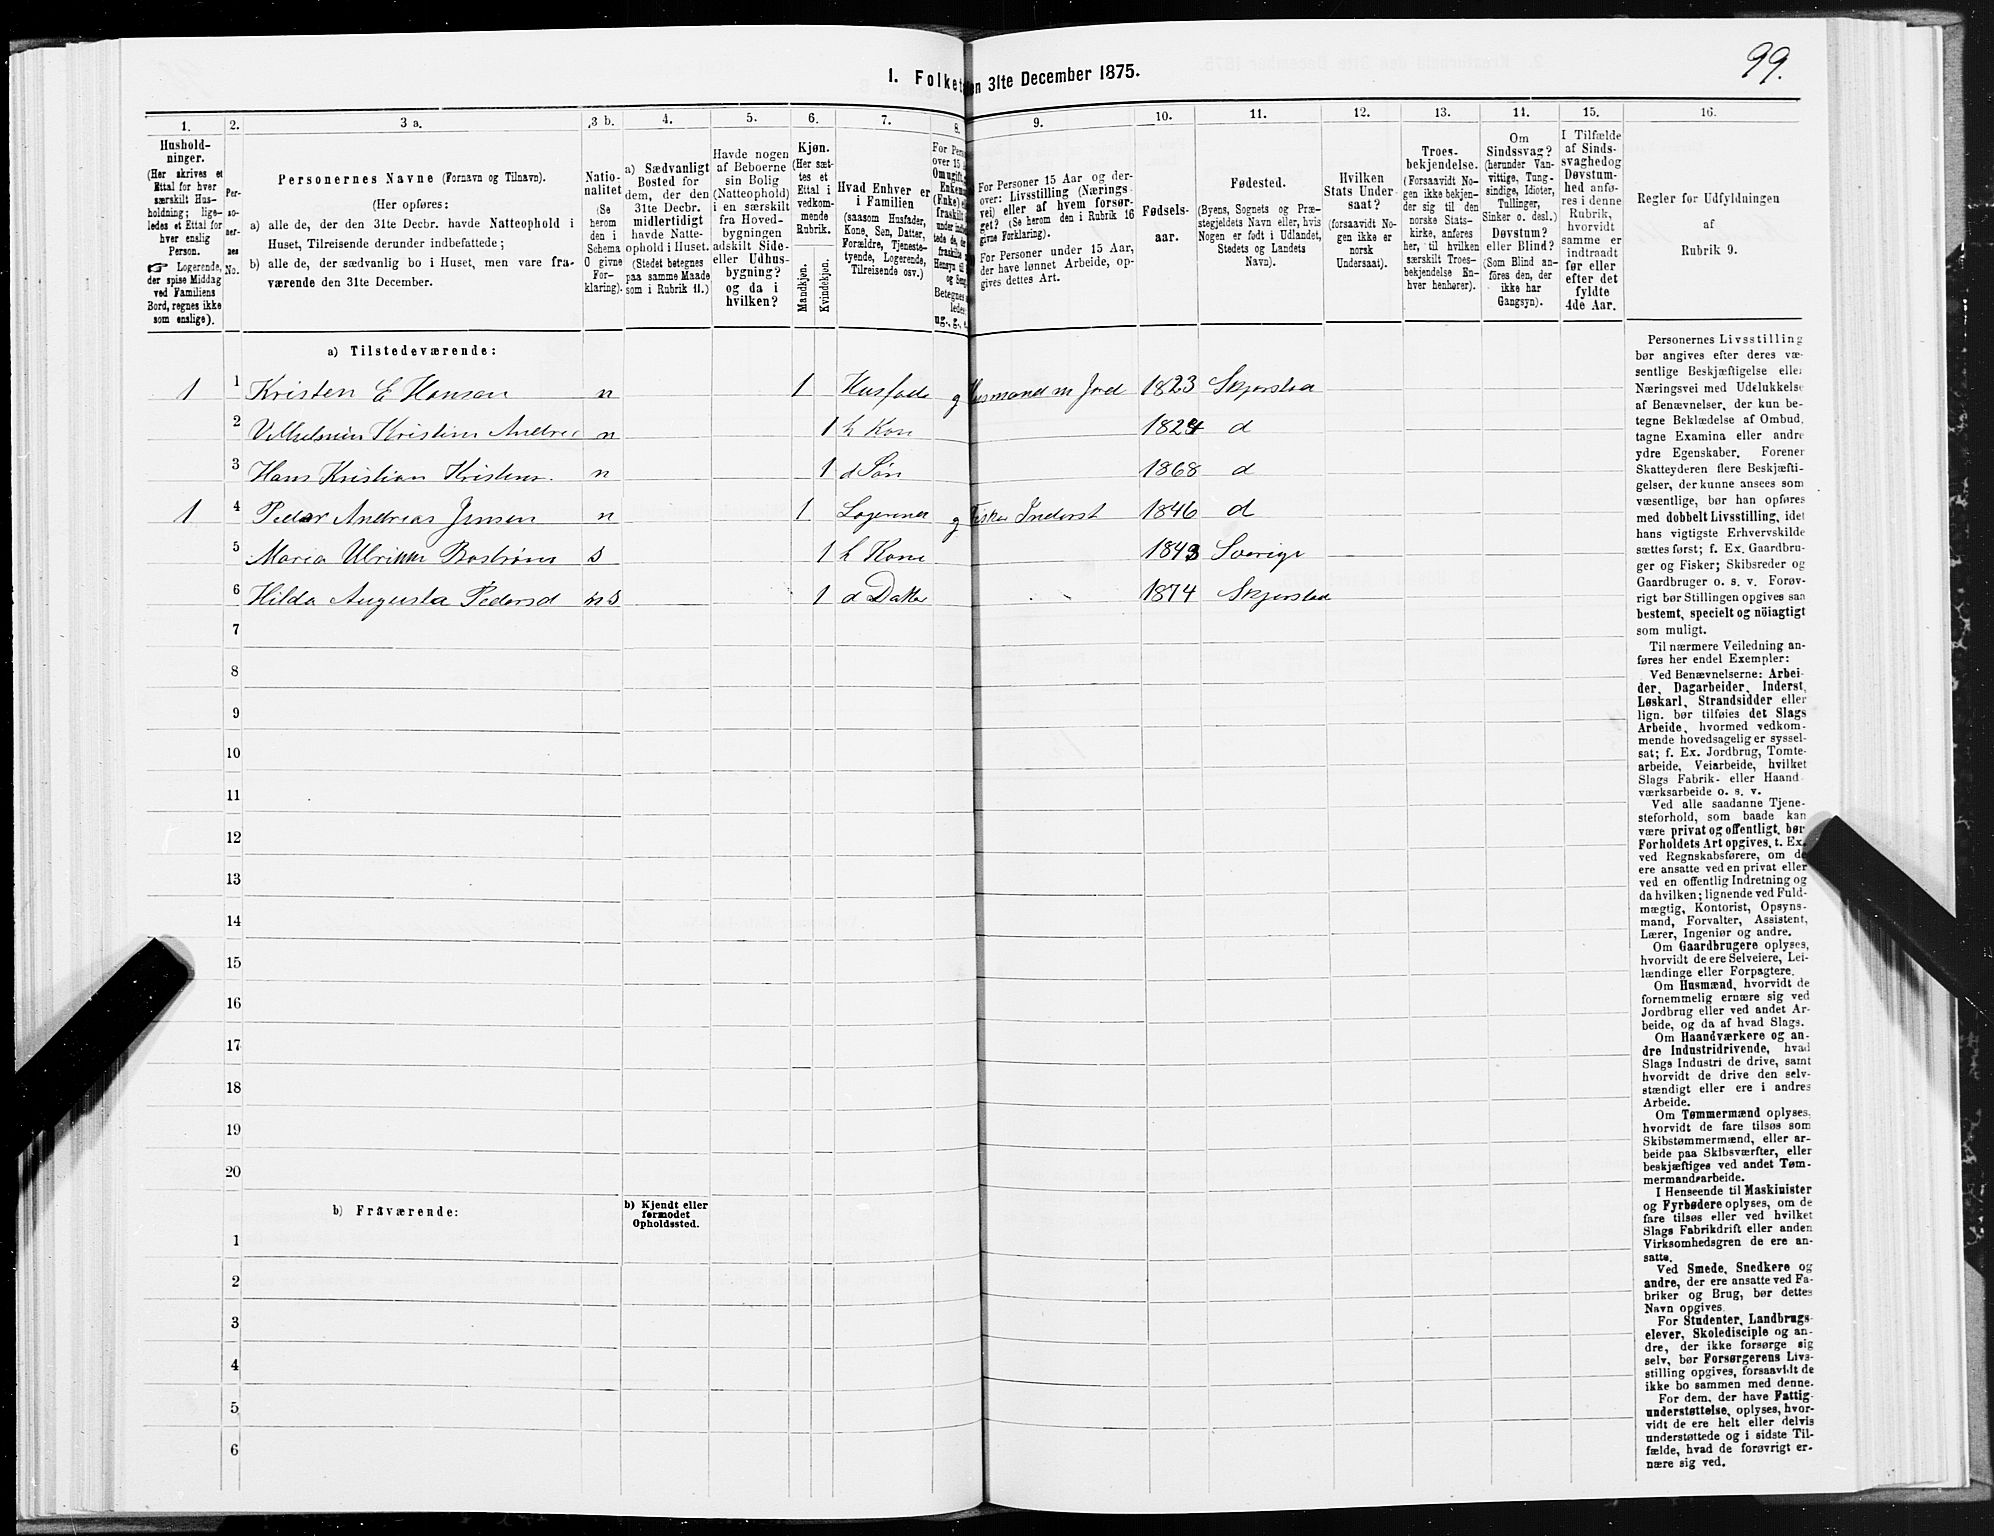 99.
I. Folket en 31te December 1875.
1. 2. 3 a. 3 b. 4. 5. 6. 7. 8. 9. 10. 11. 12. 13. 14. 15. 16.
Hushold-
ninger.
(Her skrives et
Ettal for hver
særskilt Hus-
holdning; lige-
ledes et Ettal for
hver enslig
Person.
☞ Logerende,
der spise Middag
ved Familiens
Bord, regnes ikke
som enslige).
Per-
so-
ner-
nes
No.
Personernes Navne (Fornavn og Tilnavn).
(Her opføres:
a) alle de, der den 31te Decbr. havde Natteophold i
Huset, Tilreisende derunder indbefattede;
b) alle de, der sædvanlig bo i Huset, men vare fra-
værende den 31te December.
Natio-
nalitet
(Se
herom
den i
Schema
O givne
For-
klaring).
a) Sædvanligt
Bosted for
dem, der den
31te Decbr.
midlertidigt
havde Natte-
ophold i Huset.
(Stedet betegnes
paa samme Maade
som i Rubrik 11.)
Havde nogen
af Beboerne
sin Bolig
(Natteophold)
i en særskilt
fra Hoved-
bygningen
adskilt Side-
eller Udhus-
bygning?
og da i
hvilken?
Kjøn.
(Her sæt-
tes et
Ettal i
vedkom-
mende
Rubrik.
Mandkjøn.
Kvindekjøn.
Hvad Enhver er
i Familien
(saasom Husfader,
Kone, Søn, Datter,
Forældre, Tjeneste-
tyende, Logerende,
Tilreisende osv.)
For Pers
over 15
Omugift,
Enkem
(Enke) e
fraskilt
under indb
tede de,
fraskilte
Hensyn til
og Seng
Betegnes
ledes:
ug., g., e.
For Personer 15 Aar og der-
over: Livsstilling (Nærings-
vei) eller af hvem forsør-
get? (Se herom den i Rubrik 16
givne Forklaring).
For Personer under 15 Aar,
der have lønnet Arbeide, op-
gives dettes Art.
Fødsels-
aar.
Fødested.
(Byens, Sognets og Præ-
stegjeldets Navn eller, hvis
Nogen er født i Udlandet,
Stedets og Landets
Navn).
Hvilken
Stats Under-
saat?
(forsaavidt No-
gen ikke er
norsk
Undersaat).
Troes-
bekjendelse.
(Forsaavidt No-
gen ikke bekjen-
der sig til den
norske Stats-
kirke, anføres
her, til hvilken
særskilt Troes-
bekjendelse En-
hver henhører).
Om
Sindssvag?
(herunder Van-
vittige, Tung-
sindige, Idioter,
Tullinger,
Sinker o. desl.)
Døvstum?
eller Blind?
(Som Blind an-
føres den, der
ikke har
Gangsyn).
I Tilfælde
af Sinds-
svaghedog
Døvstum-
hed anfø-
res i denne
Rubrik,
hvorvidt
samme er
indtraadt
før eller
efter det
fyldte
4de Aar.
Regler for Udfyldningen
af
Rubrik 9.
a) Tilstedeværende:
1 1 Kristen E Hansen n 1 Husfade g Husmand m Jord 1823 Skjerstad
2 Vilhelmin Kristine Andre n 1 h Kone 1824 d
3 Hans Kristian Kristens. n 1 d Søn 1868 d
1 4 Peder Andreas Jensen n 1 Logerende g Fisker Inderst 1846 d
5 Maria Ulrikke Bostrøm s 1 h Kone 1843 Sverige
6 Hilda Augusta Pedersd n s 1 d Datter 1874 Skjerstad
7
8
9
10
11
12
13
14
15
16
17
18
19
20
b) Fraværende:
b) Kjendt eller
formodet
Opholdssted.
1
2
3
4
5
6
Personernes Livsstilling
bør angives efter deres væ-
sentlige Beskjæftigelse eller
Næringsvei med Udelukkelse
af Benævnelser, der kun be-
tegne Beklædelse af Ombud,
tagne Examina eller andre
ydre Egenskaber. Forener
Skatteyderen flere Beskjæfti-
gelser, der kunne ansees som
væsentlige, bør han opføres
med dobbelt Livsstilling, idet
hans vigtigste Erhvervskilde
sættes først; f. Ex. Gaardbru-
ger og Fisker; Skibsreder og
Gaardbruger o. s. v. Forøv-
rigt bør Stillingen opgives saa
bestemt, specielt og nöiagtigt
som muligt.
Til nærmere Veiledning an-
føres her endel Exempler:
Ved Benævnelserne: Arbei-
der, Dagarbeider, Inderst,
Løskarl, Strandsidder eller
lign. bør tilføies det Slags
Arbeide, hvormed vedkom-
mende hovedsagelig er syssel-
sat; f. Ex. Jordbrug, Tomte-
arbeide, Veiarbeide, hvilket
Slags Fabrik- eller Haand-
værksarbeide o. s. v.
Ved alle saadanne Tjene-
steforhold, som baade kan
være privat og offentligt, bør
Forholdets Art opgives, t. Ex.
ved Regnskabsførere, om de
ere ansatte ved en privat eller
ved en offentlig Indretning og
da hvilken; lignende ved Fuld-
mægtig, Kontorist, Opsyns-
mand, Forvalter, Assistent,
Lærer, Ingeniør og andre.
Om Gaardbrugere oplyses,
hvorvidt de ere Selveiere, Lei-
lændinge eller Forpagtere.
Om Husmænd, hvorvidt de
fornemmelig ernære sig ved
Jordbrug eller ved andet Ar-
beide, og da af hvad Slags.
Om Haandværkere og an-
dre Industridrivende, hvad
Slags Industri de drive, samt
hvorvidt de drive den selv-
stændigt eller ere i andres
Arbeide.
Om Tømmermænd oplyses,
hvorvidt de fare tilsøs som
Skibstømmermænd, eller ar-
beide paa Skibsværfter, eller
beskjæftiges ved andet Tøm-
mermandsarbeide.
I Henseende til Maskinister
og Fyrbødere oplyses, om de
fare tilsøs eller ved hvilket
Slags Fabrikdrift eller anden
Virksomhedsgren de ere an-
satte.
Ved Smede, Snedkere og
andre, der ere ansatte ved Fa-
briker og Brug, bør dettes
Navn opgives.
For Studenter, Landbrugs-
elever, Skoledisciple og an-
dre, der ikke forsørge sig
selv, bør Forsørgerens Livs-
stilling opgives, forsaavidt de
ikke bo sammen med denne.
For dem, der have Fattig-
understøttelse, oplyses, hvor-
vidt de ere helt eller delvis
understøttede og i sidste Til-
fælde, hvad de forøvrigt er-
nære sig ved.